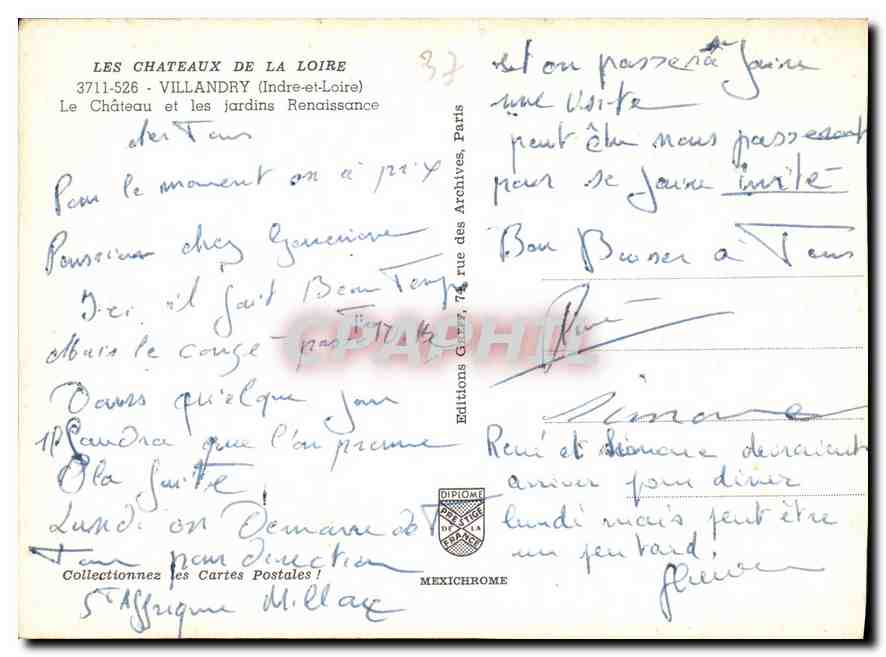 LES CHATEAUX DE LA LOIRE
3711-526 - VILLANDRY (Indre-et-Loire)
Le Château et les jardins Renaissance
37
cher Tous
Pour le moment on à prix
Pension chez Genevieve
Ici il fait Beau Temps
Mais le congé passe
Dans quelque jour
Il faudra que l'on prenne
la suite
Lundi on Demarre de
Tour pour direction
St Affrique Millau
Collectionnez les Cartes Postales !
Editions GREFF, 74, rue des Archives, Paris
DIPLOME
PRESTIGE
DE LA
FRANCE
MEXICHROME
et on passera faire
une visite
peut être nous passerons
pour se faire invité
Bon Baiser à Tous
René
Simone
René et Simone devraient
arriver pour diner
lundi mais peut être
un peu tard.
CPAPHIL